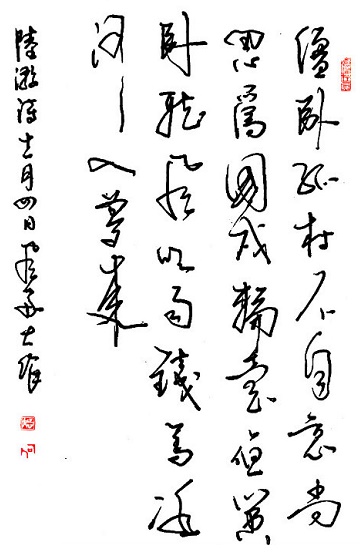 僵卧孤村不自哀尚
思為國戍輪臺夜闌
卧聽風吹雨鐵馬冰
河入夢來
陸游詩十一月四日風雨大作